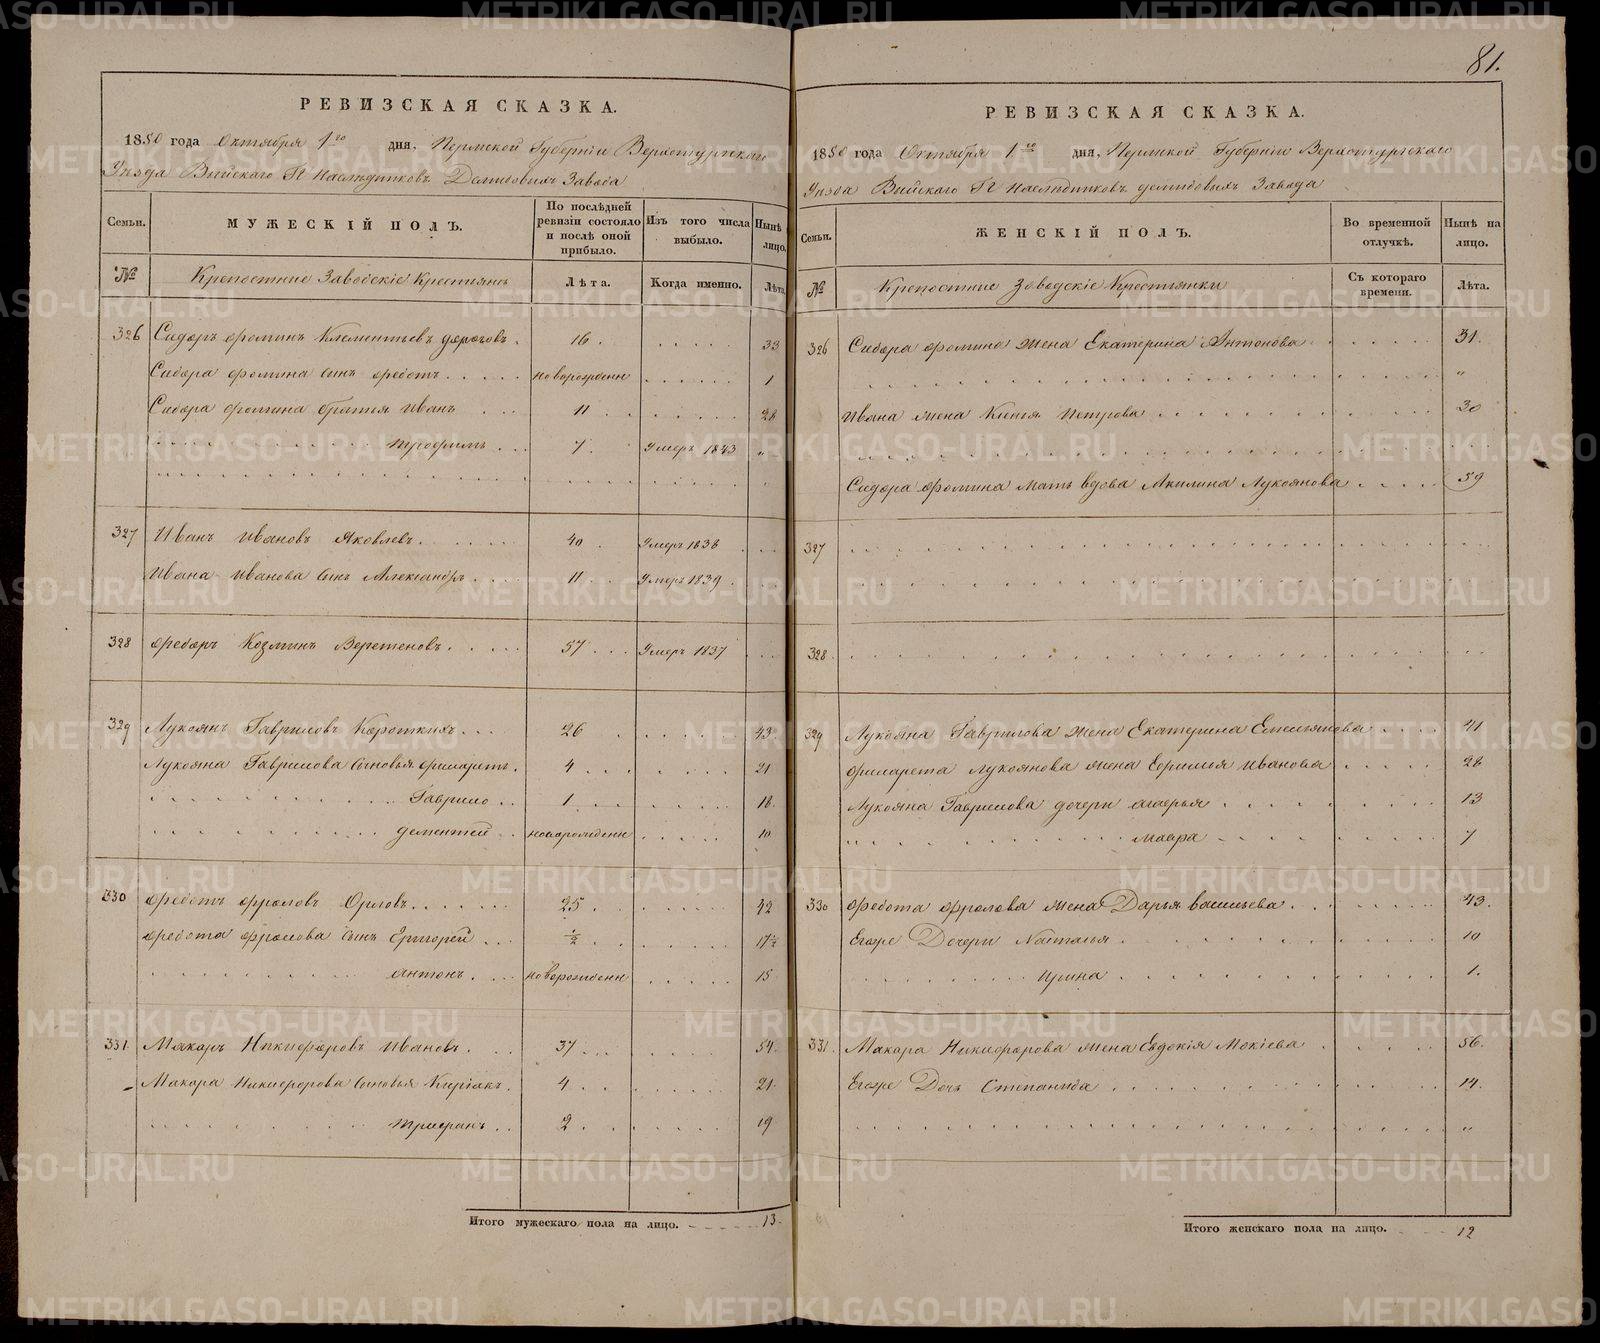 81.
РЕВИЗСКАЯ СКАЗКА.
1850 года Октября 1го дня, Пермской Губерніи Верхотурскаго
Уѣзда Выйскаго Гг Наслѣдниковъ Демидовыхъ Завода
Семьи.
МУЖЕСКІЙ ПОЛЪ.
По послѣдней ревизіи состояло и послѣ оной прибыло.
Изъ того числа выбыло.
Нынѣ на лицо.
№ Крепостные Заводскіе Крестьянъ Лѣта. Когда именно. Лѣта.
326 Сидоръ Фоминъ Клементьевъ . 16 . 33
Сидора Фомина сынъ Федотъ новорожденн 1
Сидора Фомина братья Иванъ 11 28
Трофимъ 7 Умеръ 1843 "
327 Иванъ Ивановъ Яковлевъ 40 Умеръ 1838
Ивана Иванова сынъ Александръ 11 Умеръ 1839
328 Федоръ Козминъ Веретеновъ 57 Умеръ 1837
329 Лукоянъ Гавриловъ Короткихъ 26 43
Лукояна Гаврилова сыновья Филаретъ 4 21
Гаврило 1 18
Дементей новорожденн 10
330 Федотъ Фроловъ Орловъ 25 42
Федота Фролова сынъ Григорей ½ 17½
Антонъ новорожденн 15
331 Макаръ Никифоровъ Ивановъ 37 54
Макара Никифорова сыновья Киріакъ 4 21
Трифанъ 2 19
Итого мужескаго пола на лицо. 13
РЕВИЗСКАЯ СКАЗКА.
1850 года Октября 1го дня, Пермской Губерніи Верхотурскаго
Уѣзда Выйскаго Гг Наслѣдниковъ Демидовыхъ Завода
Семьи.
ЖЕНСКІЙ ПОЛЪ.
Во временной отлучкѣ.
Нынѣ на лицо.
№ Крепостные Заводскіе Крестьянки Съ котораго времени. Лѣта.
326 Сидора Фомина жена Екатерина Антонова 31.
"
Ивана жена Ксенья Петрова 30
Сидора Фомина мать вдова Акилина Лукоянова 59
327
328
329 Лукояна Гаврилова жена Екатерина Емельянова 41
Филарета Лукоянова жена Ефимья Иванова 28
Лукояна Гаврилова дочери 13
Мавра 7
330 Федота Фролова жена Дарья Васильева 43.
Егоже Дочери Наталья 10
Ирина 1.
331. Макара Никифорова жена Евдокія Мокіева 56.
Егоже Дочь Степанида 14.
"
Итого женскаго пола на лицо. 12
METRIKI.GASO-URAL.RU